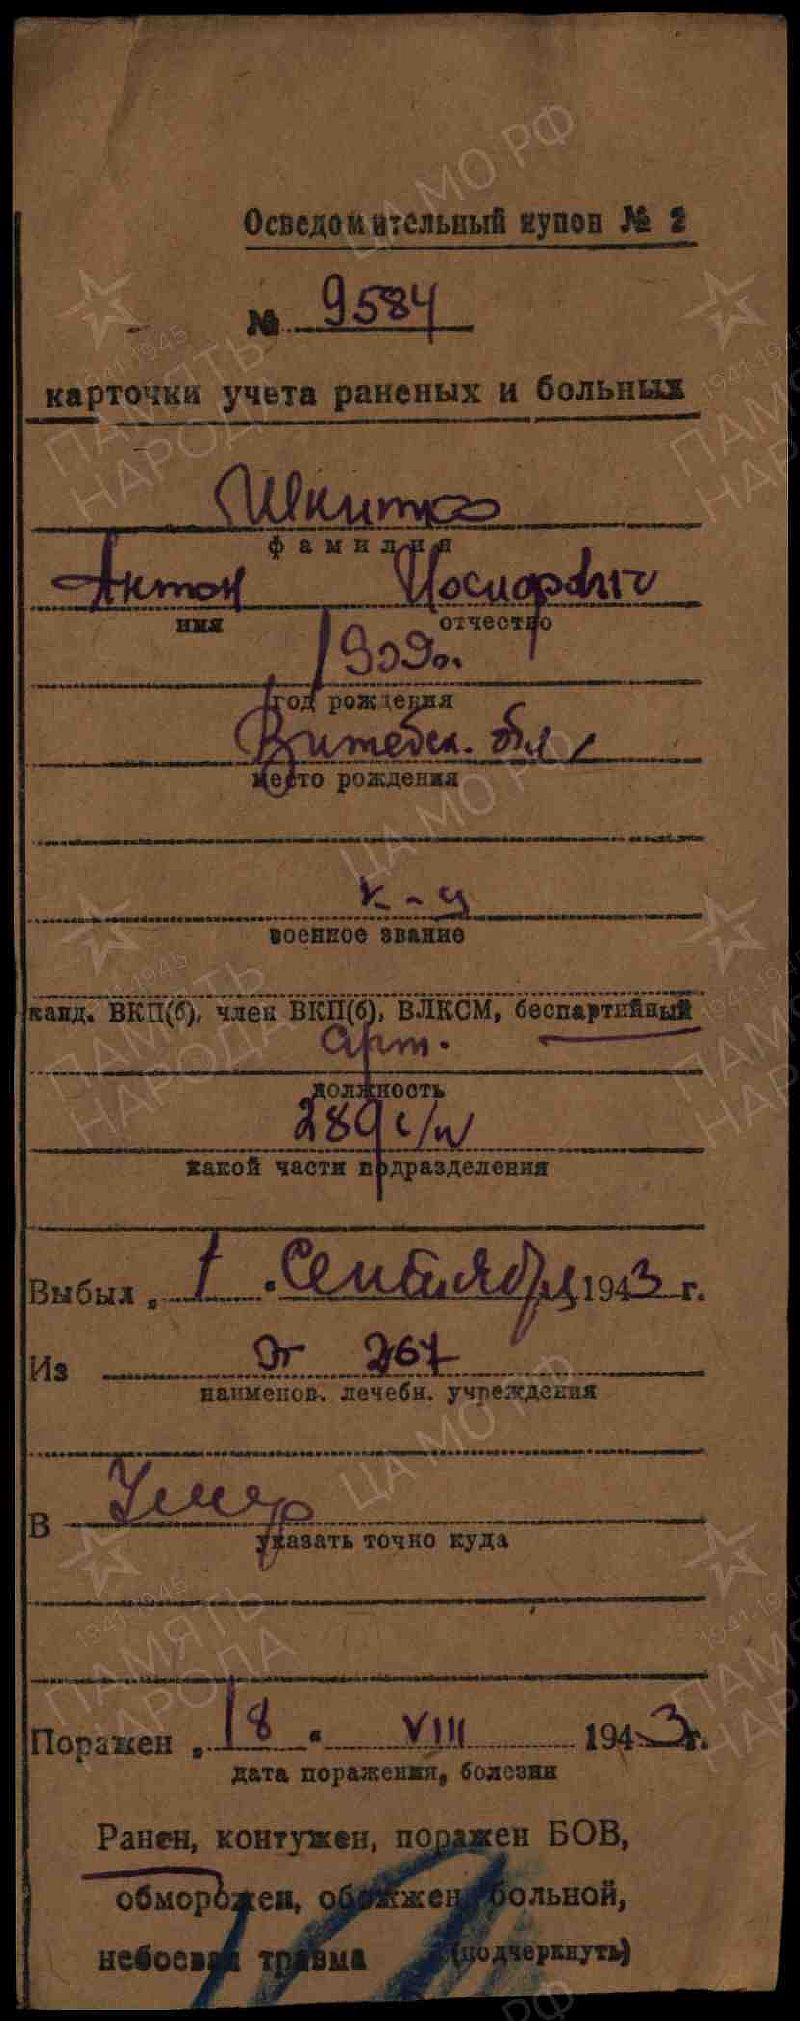 Осведомительный купон № 2
№ 9584
карточки учета раненых и больных
Шкитко
фамилия
Антон Иосифович
имя отчество
1909г.
год рождения
Витебск. обл
место рождения
к-ц
военное звание
канд. ВКП(б), член ВКП(б), ВЛКСМ, беспартийный
арт.
должность
289 с/п
какой части подразделения
Выбыл „ 1 " Сентября 1943 г.
Из ЭГ 267
наименов. лечебн. учреждения
В Умер
указать точно куда
Поражен „ 18 " VIII 1943 г.
дата поражения, болезни
Ранен, контужен, поражен БОВ,
обморожен, обожжен, больной,
небоевая травма (подчеркнуть)
ЦА МО РФ
1941-1945
ПАМЯТЬ
НАРОДА